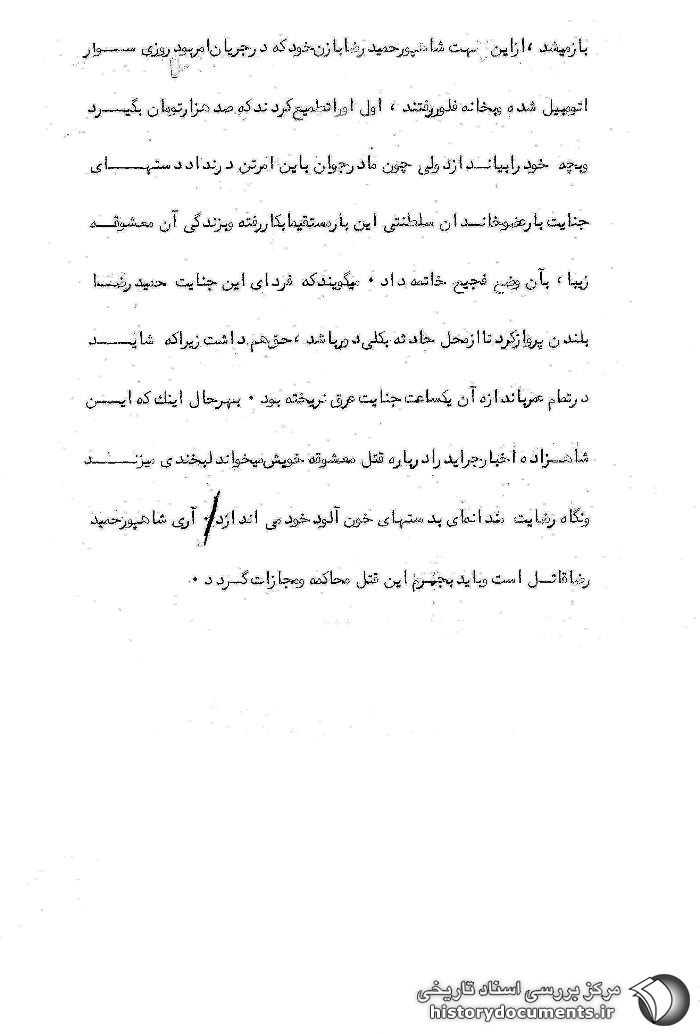 بازمیشد ، ازاین جهت شاهپورحمید رضابازن خود که درجریان امربود روزی ســـوار
اتومبیل شده وبخانه فلوررفتند ، اول اوراتطمیع کردند که صد هزارتومان بگیــرد
وبچه خود رابیانــدازد ولی چون مادرجوان باین امرتن درنداد دستهــــای
جنایت بارعضوخانــدان سلطنتی این بارمستقیمابکاررفته وبزندگی آن معشوقــه
زیبا ، بآن وضع فجیع خاتمه داد ۰ میگویند که فردای این جنایت حمید رضــا
بلندن پروازکرد تاازمحل حادثه بکلی دورباشد ، حق هم داشت زیراکه شایــد
درتمام عمرباندازه آن یکساعت جنایت عرق نریخته بود ۰ بهرحال اینک که ایــن
شاهــزاده اخبارجراید رادرباره قتل معشوقه خویش میخواند لبخندی میزنــد
ونگاه رضایت مندانه‌ای بدستهای خون آلود خود می اندازد ۰ آری شاهپورحمید
رضاقاتــل است وباید بجرم این قتل محاکمه ومجازات گــردد ۰
مرکز بررسی اسناد تاریخی
historydocuments.ir